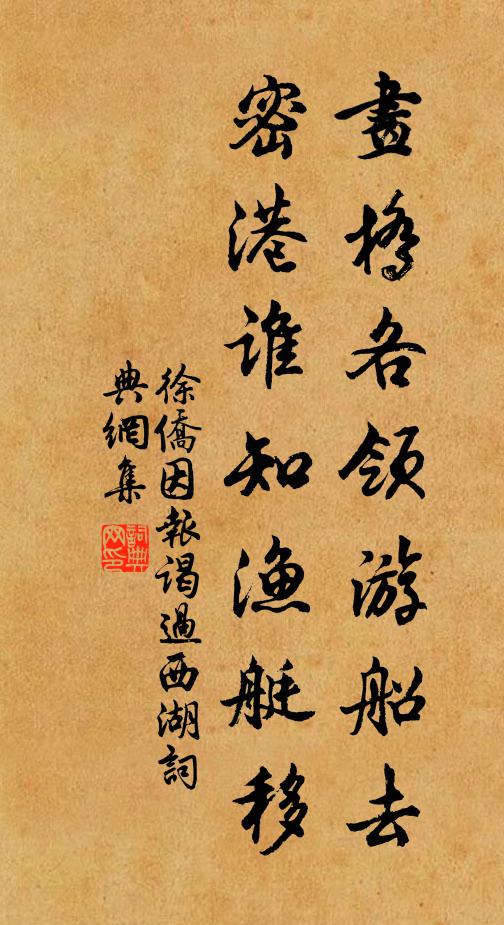 畫橋各領游船去
密港誰知漁艇移
徐僑因報謁過西湖詞
典網集
詞典网印